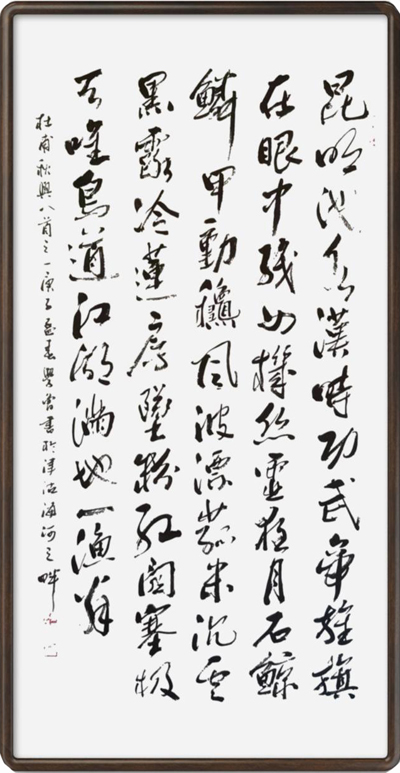 昆明池水漢時功武帝旌旗
在眼中織女機絲虛夜月石鯨
鱗甲動龝風波漂菰米沉雲
黑露冷蓮房墜粉紅關塞極
天唯鳥道江湖滿地一漁翁
杜甫秋興八首之一庚子書於津沽海河之畔